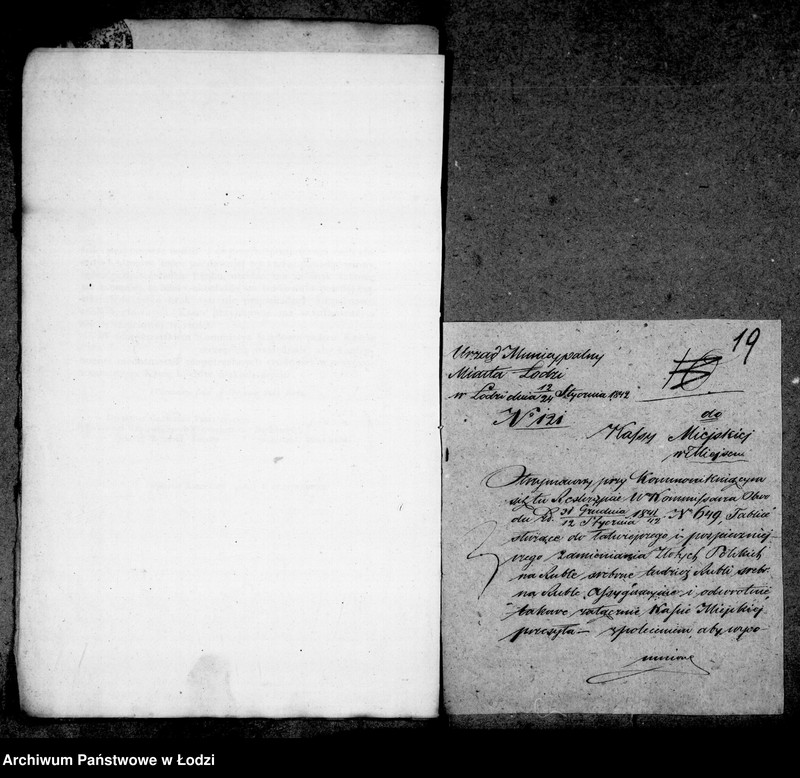 19
Urząd Municypalny
Miasta Łodzi
w Łodzi dnia 12/24 Stycznia 1842
N° 121
do
Kassy Miejskiej
w Miejscu
Otrzymawszy przy Kommunikującym
się tu Reskrypcie W Kommissarza Obwo
du d. 31 Grudnia/12 Stycznia 1841/42 N° 649, Tablic
służące do łatwiejszego i
zamieniania Złotych Polskich
na Ruble srebrne tudzież Rubli srebr
na Ruble Assygnacyjne i odwrotnie,
takowe załącznie Kassie Miejskiej
przesyła – z poleceniem, aby wspo
mnione
Archiwum Państwowe w Łodzi